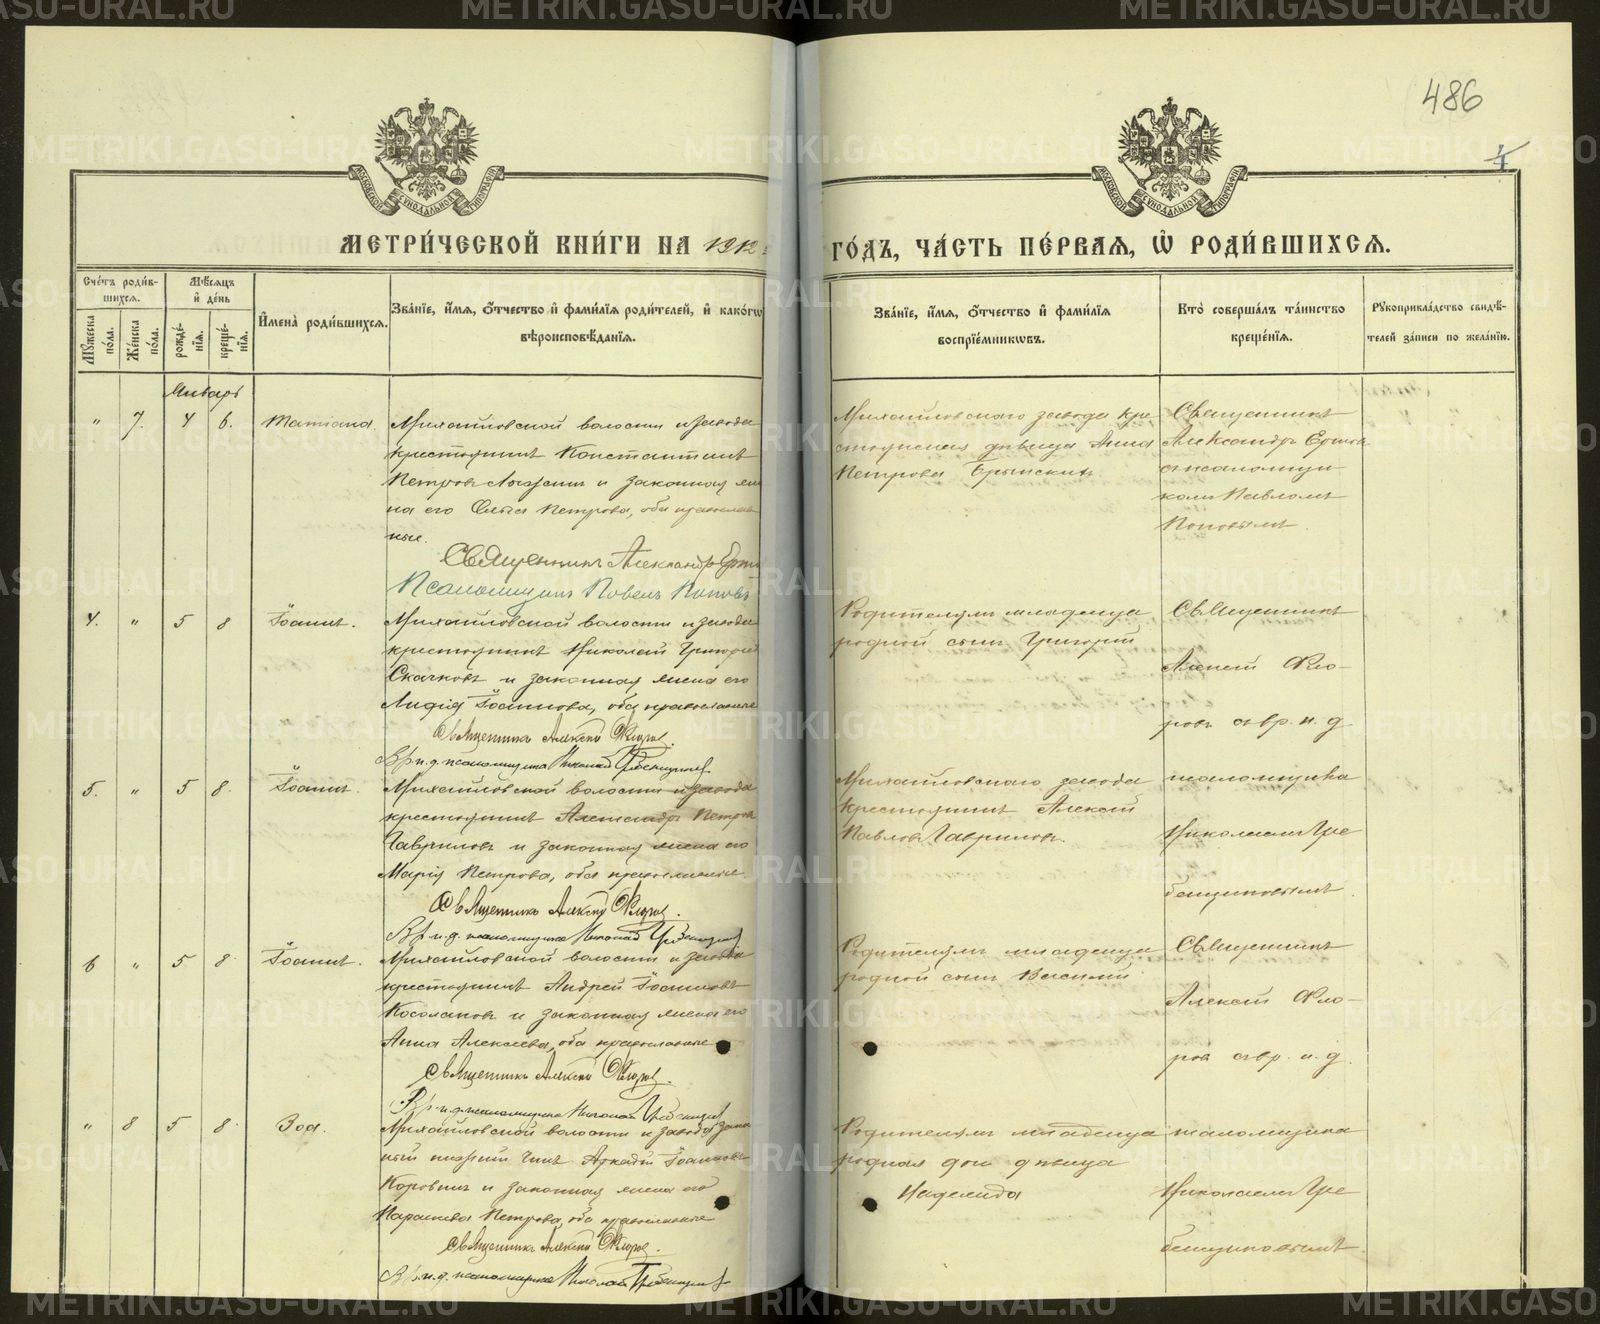 486
4
МОСКОВСКОЙ СѴНОДАЛЬНОЙ ТИПОГРАФІИ
МОСКОВСКОЙ СѴНОДАЛЬНОЙ ТИПОГРАФІИ
МЕТРИ́ЧЕСКОЙ КНИ́ГИ НА 1912
ГО́ДЪ, ЧА́СТЬ ПЕ́РВАЯ, Ѡ҆ РОДИ́ВШИХСЯ.
Сче́тъ роди́в-
шихся.
Мѣ́сяцъ
и҆ де́нь
Мꙋ́жеска по́ла.
Же́нска по́ла.
рожде́-
нїя.
креще́-
нїя.
И҆мена̀ роди́вшихся.
Зва́нїе, и҆́мя, ѻ҆́тчество и҆ фами́лїя роди́телей, и҆ како́гѡ
вѣроисповѣ́данїя.
Зва́нїе, и҆́мя, ѻ҆́тчество и҆ фами́лїя
воспрїе́мникѡвъ.
Кто̀ соверша́лъ та́инство
креще́нїя.
Рꙋкоприкла́дство свидѣ́-
телей за́писи по жела́нїю.
Январь
" 7. 4 6. Татiана.
Михайловской волости и завода
крестьянинъ Константинъ
Петровъ и законная же
на его Ольга Петрова, оба православ
ные.
Священникъ Александръ
Псаломщикъ Павелъ Поповъ
Михайловскаго завода кре
стьянская дѣвица Анна
Петрова
Священникъ
Александръ
съ псаломщи
комъ Павломъ
Поповымъ.
4. " 5 8 Іоаннъ.
Михайловской волости и завода
крестьянинъ Николай Григорій
Скачковъ и законная жена его
Лидія Іоаннова, оба православные
Священникъ Алексѣй Флоровъ.
Вр. и. д. псаломщика Николай Гребенщиковъ
Родителямъ младенца
родной сынъ Григорій
Священникъ
Алексѣй Фло-
ровъ съ вр. и. д.
5. " 5 8. Іоаннъ.
Михайловской волости и завода
крестьянинъ Александръ Петровъ
Гавриловъ и законная жена его
Марія Петрова, оба православные
Священникъ Алексѣй Флоровъ.
Вр. и. д. псаломщика Николай Гребенщиковъ
Михайловскаго завода
крестьянинъ Алексѣй
Павловъ Гавриловъ.
псаломщика
Николаемъ Гре
бенщиковымъ.
6 " 5 8. Іоаннъ.
Михайловской волости и завода
крестьянинъ Андрей Іоанновъ
Косолаповъ и законная жена его
Анна Алексѣева, оба православные
Священникъ Алексѣй Флоровъ.
Вр. и. д. псаломщика Николай Гребенщиковъ
Родителямъ младенца
родной сынъ Василій
Священникъ
Алексѣй Фло-
ровъ съ вр. и. д.
" 8 5 8. Зоя.
Михайловской волости и завода
чинъ Аркадій Іоанновъ
Коровинъ и законная жена его
Параскева Петрова, оба православные
Священникъ Алексѣй Флоровъ.
Вр. и. д. псаломщика Николай Гребенщиковъ
Родителямъ младенца
родная дочь дѣвица
Надежда
псаломщика
Николаемъ Гре
бенщиковымъ.
METRIKI.GASO-URAL.RU